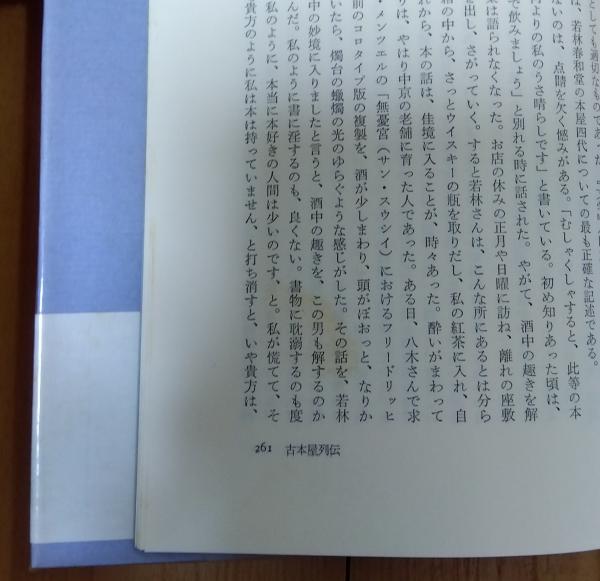 としても適切なものであった
は、若林春和堂の本屋四代についての最も正確な記述である。
ないのは、点睛を欠く憾みがある。「むしゃくしゃすると、此等の本
何よりの私のうさ晴らしです」と書いている。初め知りあった頃は、
飲みましょう」と別れる時に話された。やがて、酒中の趣きを解
は語られなくなった。お店の休みの正月や日曜に訪ね、離れの座敷
出し、さがっていく。すると若林さんは、こんな所にあるとは分ら
の中から、さっとウイスキーの瓶を取りだし、私の紅茶に入れ、自
れから、本の話は、佳境に入ることが、時々あった。酔いがまわって
りは、やはり中京の老舗に育った人であった。ある日、八木さんで求
・メンツェルの「無憂宮（サン・スウシイ）におけるフリードリッヒ
前のコロタイプ版の複製を、酒が少しまわり、頭がぼおっと、なりか
いたら、燭台の蠟燭の光のゆらぐような感じがした。その話を、若林
中の妙境に入りましたと言うと、酒中の趣きを、この男も解するのか
んだ。私のように書に淫するのも、良くない。書物に耽溺するのも度
私のように、本当に本好きの人間は少いのです、と。私が慌てて、そ
貴方のように私は本は持っていません、と打ち消すと、いや貴方は、
261 古本屋列伝